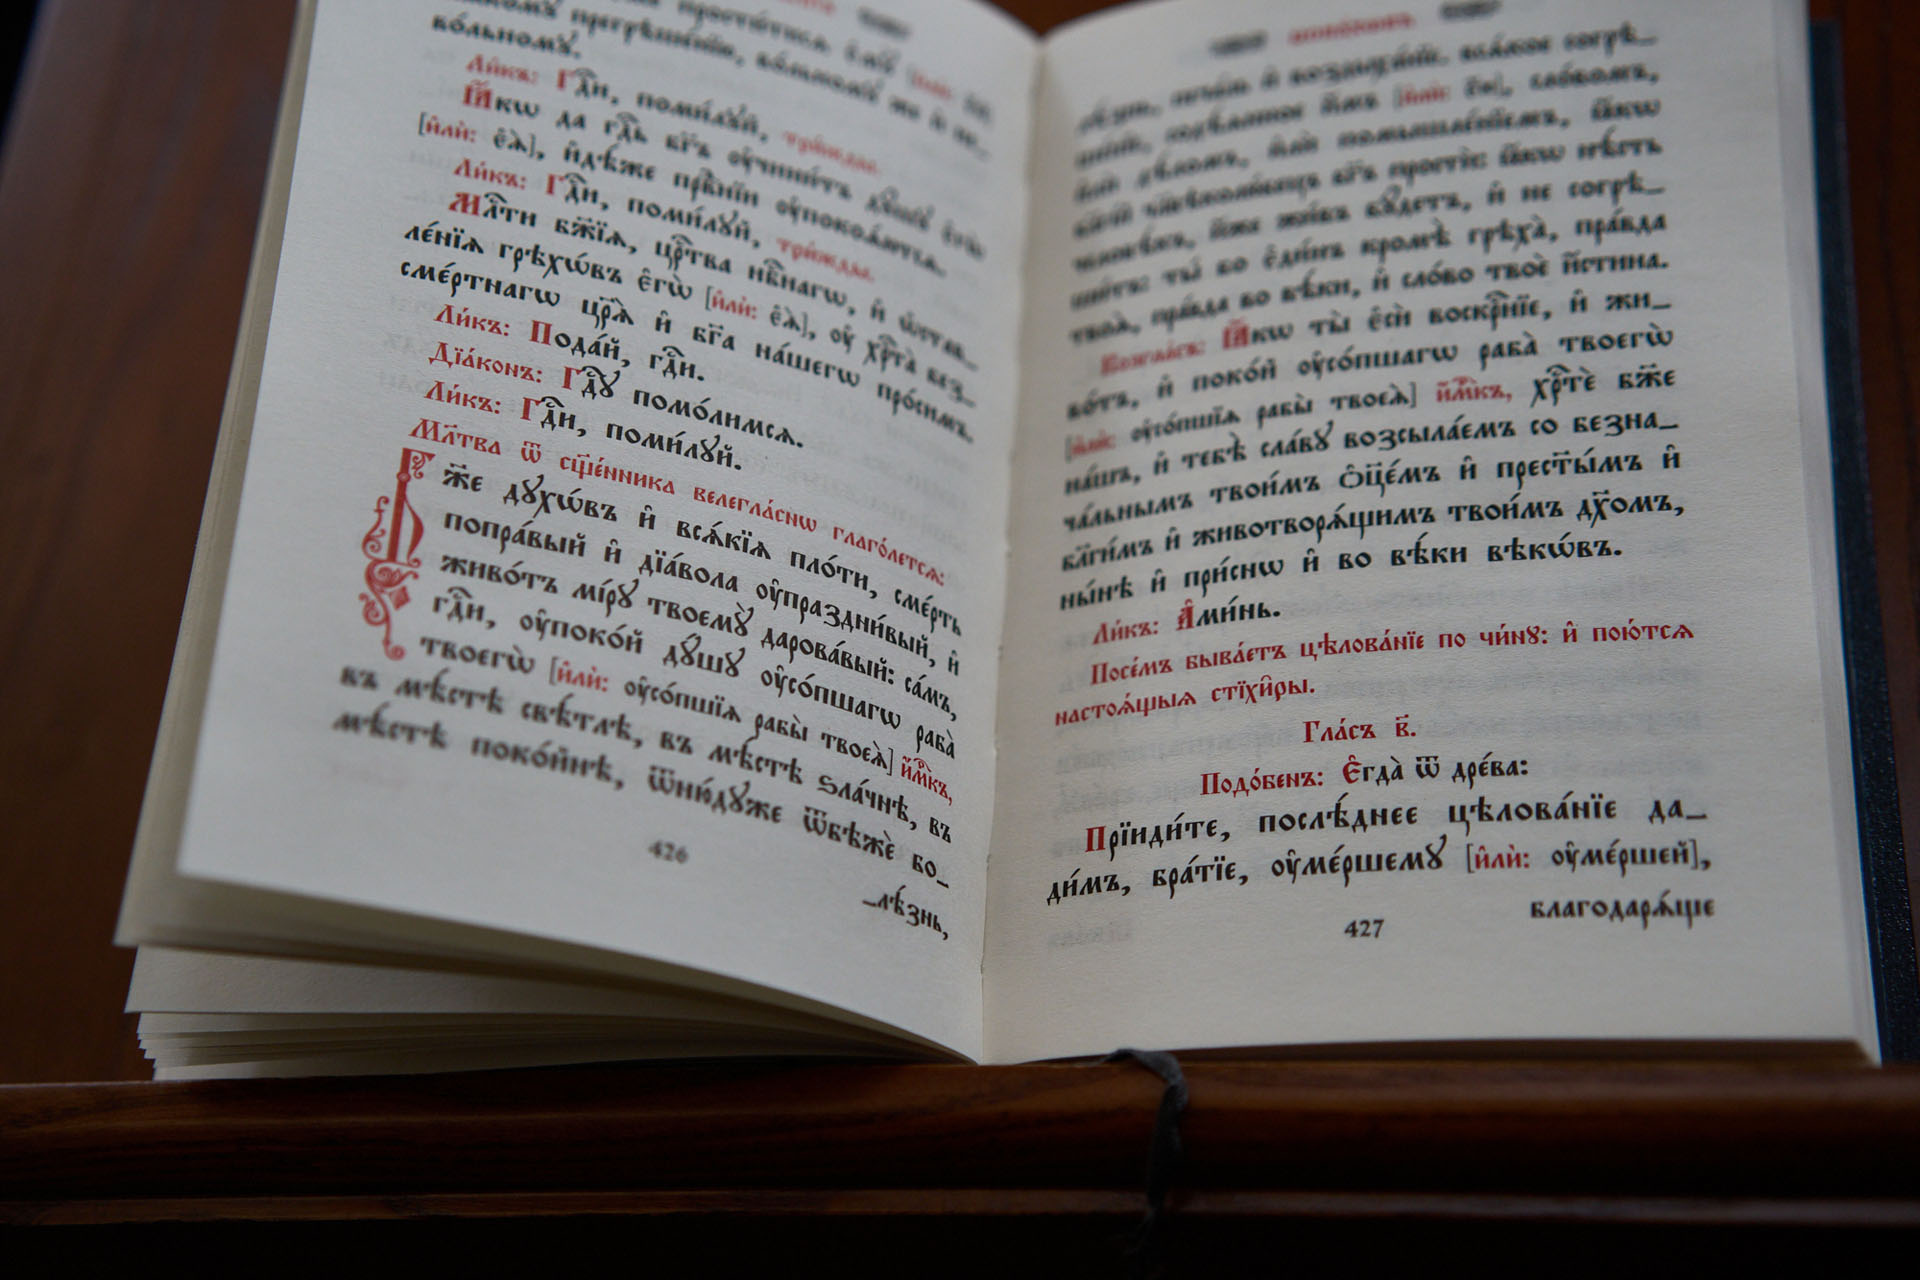 вѡ́льномꙋ.
Ли́къ: Гдⷭ҇и, поми́лꙋй, три́жды.
Ꙗ҆́кѡ да гдⷭ҇ь бг҃ъ ᲂу҆чини́тъ дꙋ́шꙋ є҆гѡ̀
[и҆лѝ: є҆ѧ̀], и҆дѣ́же првⷣнїи ᲂу҆покоѧ́ютсѧ.
Ли́къ: Гдⷭ҇и, поми́лꙋй, три́жды.
Млⷭ҇ти бж҃їѧ, црⷭ҇тва нбⷭ҇нагѡ, и҆ ѡ҆ставле́нїѧ
ле́нїѧ грѣхѡ́въ є҆гѡ̀ [и҆лѝ: є҆ѧ̀], ᲂу҆ хрⷭ҇та̀ без_
сме́ртнагѡ цр҃ѧ̀ и҆ бг҃а на́шегѡ про́симъ.
Ли́къ: Пода́й, гдⷭ҇и.
Дїа́конъ: Гдⷭ҇ꙋ помо́лимсѧ.
Ли́къ: Гдⷭ҇и, поми́лꙋй.
Мл҃тва ѿ сщ҃е́нника велегла́снѡ глаго́летсѧ:
Бж҃е дꙋхѡ́въ и҆ всѧ́кїѧ пло́ти, сме́рть
попра́вый и҆ дїа́вола ᲂу҆праздни́вый, и҆
живо́тъ мі́рꙋ твоемꙋ̀ дарова́вый: са́мъ,
гдⷭ҇и, ᲂу҆поко́й дꙋ́шꙋ ᲂу҆со́пшагѡ раба̀
твоегѡ̀ [и҆лѝ: ᲂу҆со́пшїѧ рабы̀ твоеѧ̀] и҆́мⷬ҇къ,
въ мѣ́стѣ свѣ́тлѣ, въ мѣ́стѣ ѕла́чнѣ, въ
мѣ́стѣ поко́йнѣ, ѿню́дꙋже ѿбѣжѐ бо_
_лѣ́знь,
426
лѣ́знь, печа́ль и҆ воздыха́нїе. всѧ́кое согрѣ_
ше́нїе, содѣ́ѧнное и҆́мъ [и҆лѝ: є҆́ю], сло́вомъ,
и҆лѝ дѣ́ломъ, и҆лѝ помышле́нїемъ, ꙗ҆́кѡ
бл҃гі́й чл҃вѣколю́бецъ бг҃ъ простѝ: ꙗ҆́кѡ нѣ́сть
человѣ́къ, и҆́же жи́въ бꙋ́детъ, и҆ не согрѣ_
ши́тъ: ты́ бо є҆ди́нъ кромѣ̀ грѣха̀, пра́вда
твоѧ̀, пра́вда во вѣ́ки, и҆ сло́во твоѐ и҆́стина.
Возгла́съ: Ꙗ҆́кѡ ты̀ є҆сѝ воскрⷭ҇нїе, и҆ жи_
во́тъ, и҆ поко́й ᲂу҆со́пшагѡ раба̀ твоегѡ̀
[и҆лѝ: ᲂу҆со́пшїѧ рабы̀ твоеѧ̀] и҆́мⷬ҇къ, хрⷭ҇тѐ бж҃е
на́шъ, и҆ тебѣ̀ сла́вꙋ возсыла́емъ со безна_
ча́льнымъ твои́мъ ѻ҆ц҃е́мъ и҆ прест҃ы́мъ и҆
бл҃ги́мъ и҆ животворѧ́щимъ твои́мъ дх҃омъ,
ны́нѣ и҆ при́снѡ и҆ во вѣ́ки вѣкѡ́въ.
Ли́къ: А҆ми́нь.
Посе́мъ быва́етъ цѣлова́нїе по чи́нꙋ: и҆ пою́тсѧ
настоѧ́щыѧ стїхи̑ры.
Гла́съ в҃.
Подо́бенъ: Є҆гда̀ ѿ дре́ва:
Прїиди́те, послѣ́днее цѣлова́нїе да_
ди́мъ, бра́тїе, ᲂу҆ме́ршемꙋ [и҆лѝ: ᲂу҆ме́ршей],
благодарѧ́ще
427